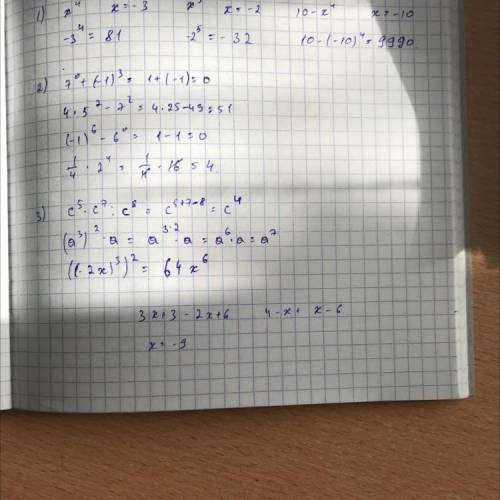 1) x⁴ x = -3 x⁵ x = -2 10 - x⁴ x = -10
-3⁴ = 81 -2⁵ = -32 10 - (-10)⁴ = 9990
2) 7⁰ + (-1)³ = 1 + (-1) = 0
4 · 5² - 7² = 4 · 25 - 49 = 51
(-1)⁶ - 6⁰ = 1 - 1 = 0
1/4 · 2⁴ = 1/4 · 16 = 4
3) c⁵ · c⁷ : c⁸ = c⁵⁺⁷⁻⁸ = c⁴
(a³)² · a = a³·² · a = a⁶ · a = a⁷
((-2x)³)² = 64x⁶
3x + 3 - 2x + 6 4 - x + x - 6
x = -9